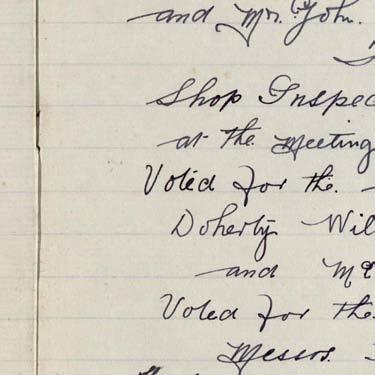 and Mr. John.
Shop Inspec
at the meeting
Voted for the
Doherty Wil
and Mc
Voted for the
Messrs.